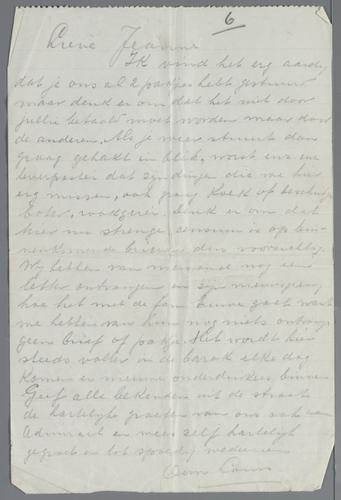 6
Lieve Jeanne
Ik vind het erg aardig
dat je ons al 2 pakjes hebt gestuurd
maar denk er om dat het niet door
jullie betaald moet worden maar door
de anderen. Als je weer stuurt dan
graag gehakt in blik, worst enz en
leverpastei dat zijn dingen die we hier
erg missen, ook graag koek of beschuit
boter, rookgerei. Denk er om dat
hier nu strenge censuur is op bin-
nenkomende brieven dus voorzichtig.
Wij hebben van niemand nog een
letter ontvangen en zijn nieuwsgierig
hoe het met de fam gaat want
we hebben van hun nog niets ontvang
geen brief of pakje. Het wordt hier
steeds voller in de barak elke dag
komen er nieuwe onderduikers binnen
Geef alle bekenden uit de straat
de hartelijke groeten van ons ook van
Admiraal en wees zelf hartelijk
gegroet en tot spoedig wederzien
Oom